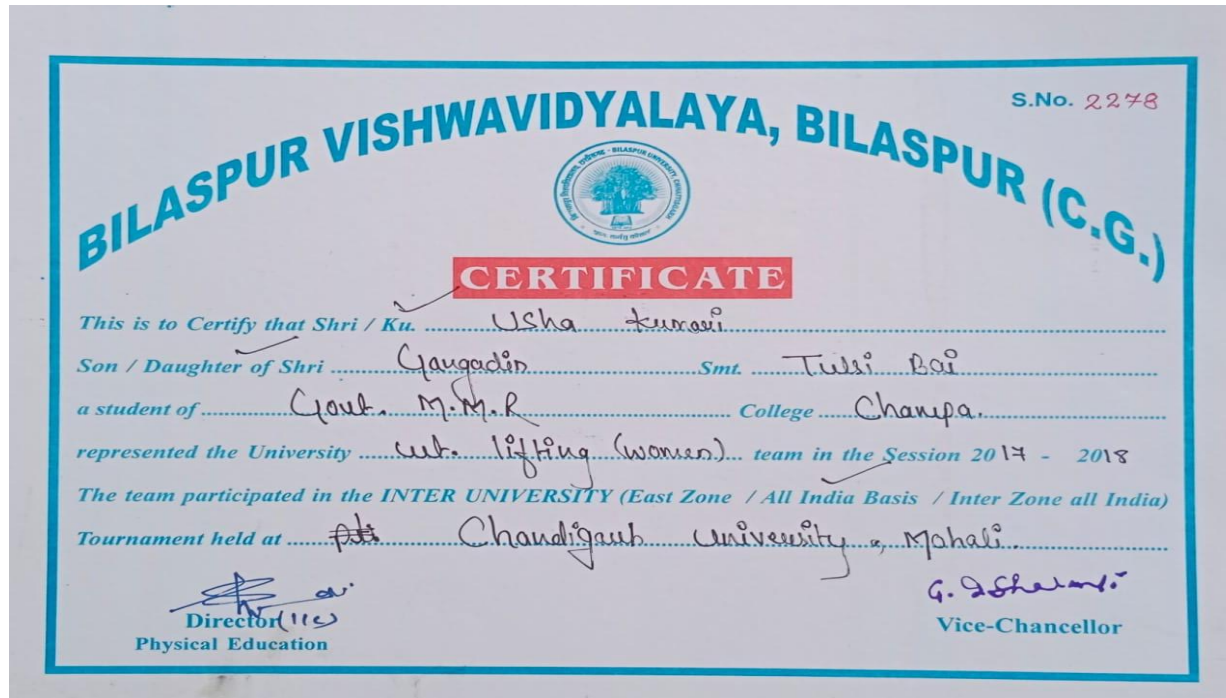 S.No. 2278
BILASPUR VISHWAVIDYALAYA, BILASPUR (C.G.)
CERTIFICATE
This is to Certify that Shri / Ku. Usha Kumari
Son / Daughter of Shri Gangadin Smt. Tulsi Bai
a student of Gout. M.M.R College Champa.
represented the University wt. lifting (women) team in the Session 2017 - 2018
The team participated in the INTER UNIVERSITY (East Zone / All India Basis / Inter Zone all India)
Tournament held at Chandigarh University, Mohali.
Director (I/c)
Physical Education
Vice-Chancellor